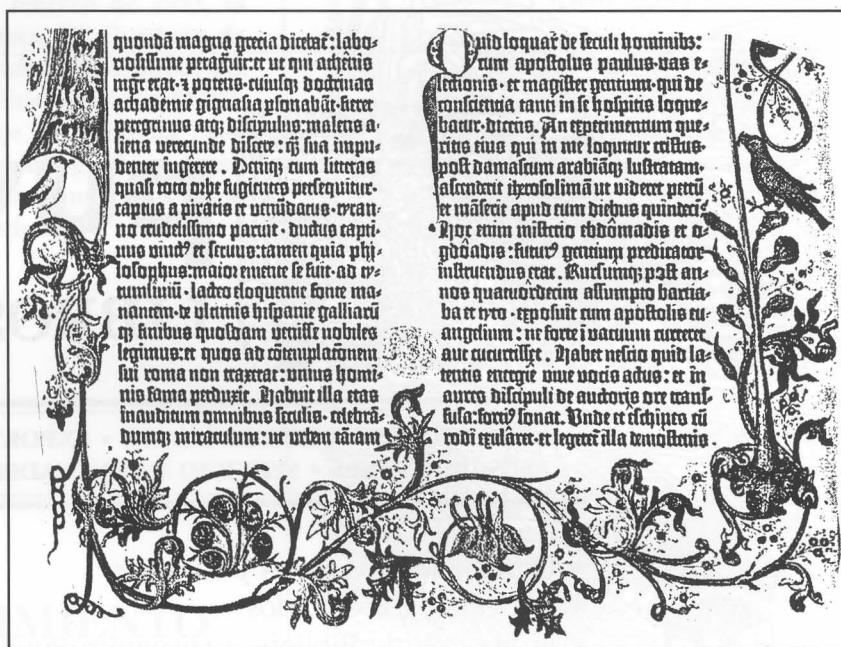 quondā magna grecia dicebat̄: labo-
riosissime peraguit: et ut qui athenis
mgr̄ erat · ⁊ potens · cuiusq; doctrinas
achademie gignasia ꝑsonabāt · fieret
peregrinus atq; discipulus: malens a-
liena verecunde discere: q̄ sua impu-
denter ingerere. Deniq; cum litteras
quasi toto orbe fugientes persequitur ·
captus a piratis et venūdatus · tyran-
no crudelissimo paruit · ductus capti-
uus vinct⁹ et seruus: tamen quia phi-
losophus: maior emente se fuit · ad ty-
tumliuiū · lacteo eloquentie fonte ma-
nantem · de ultimis hispanie galliarū
q; finibus quosdam venisse nobiles
legimus: et quos ad cōtemplationem
sui roma non traxerat: unius homi-
nis fama perduxit. Habuit illa etas
inauditum omnibus seculis · celebrā-
dumq; miraculum: ut urbem tātam
Quid loquar de seculi hominibꝫ:
cum apostolus paulus · vas e-
lectionis · et magister gentium · qui de
conscientia tanti in se hospitis loque-
batur · dicens. An experimentum que-
ritis eius qui in me loquitur cristus ·
post damascum arabiāq; lustratam ·
ascenderit iherosolimā ut videret petrū
et māserit apud eum diebus quindecī
Hoc enim misterio ebdōmadis et o-
gdōadis: futur⁹ gentium predicator
instruendus erat. Rursumq; post an-
nos quatuordecim assumpto barna-
ba et tyto · exposuit cum apostolis eu-
angelium: ne forte ī vacuum curreret
aut cucurrisset. Habet nescio quid la-
tentis energie vive vocis actus: et in
aures discipuli de auctoris ore trans-
fusa: forti⁹ sonat. Unde et eschines cū
rodi exularet · et legeret̄ illa demostenis